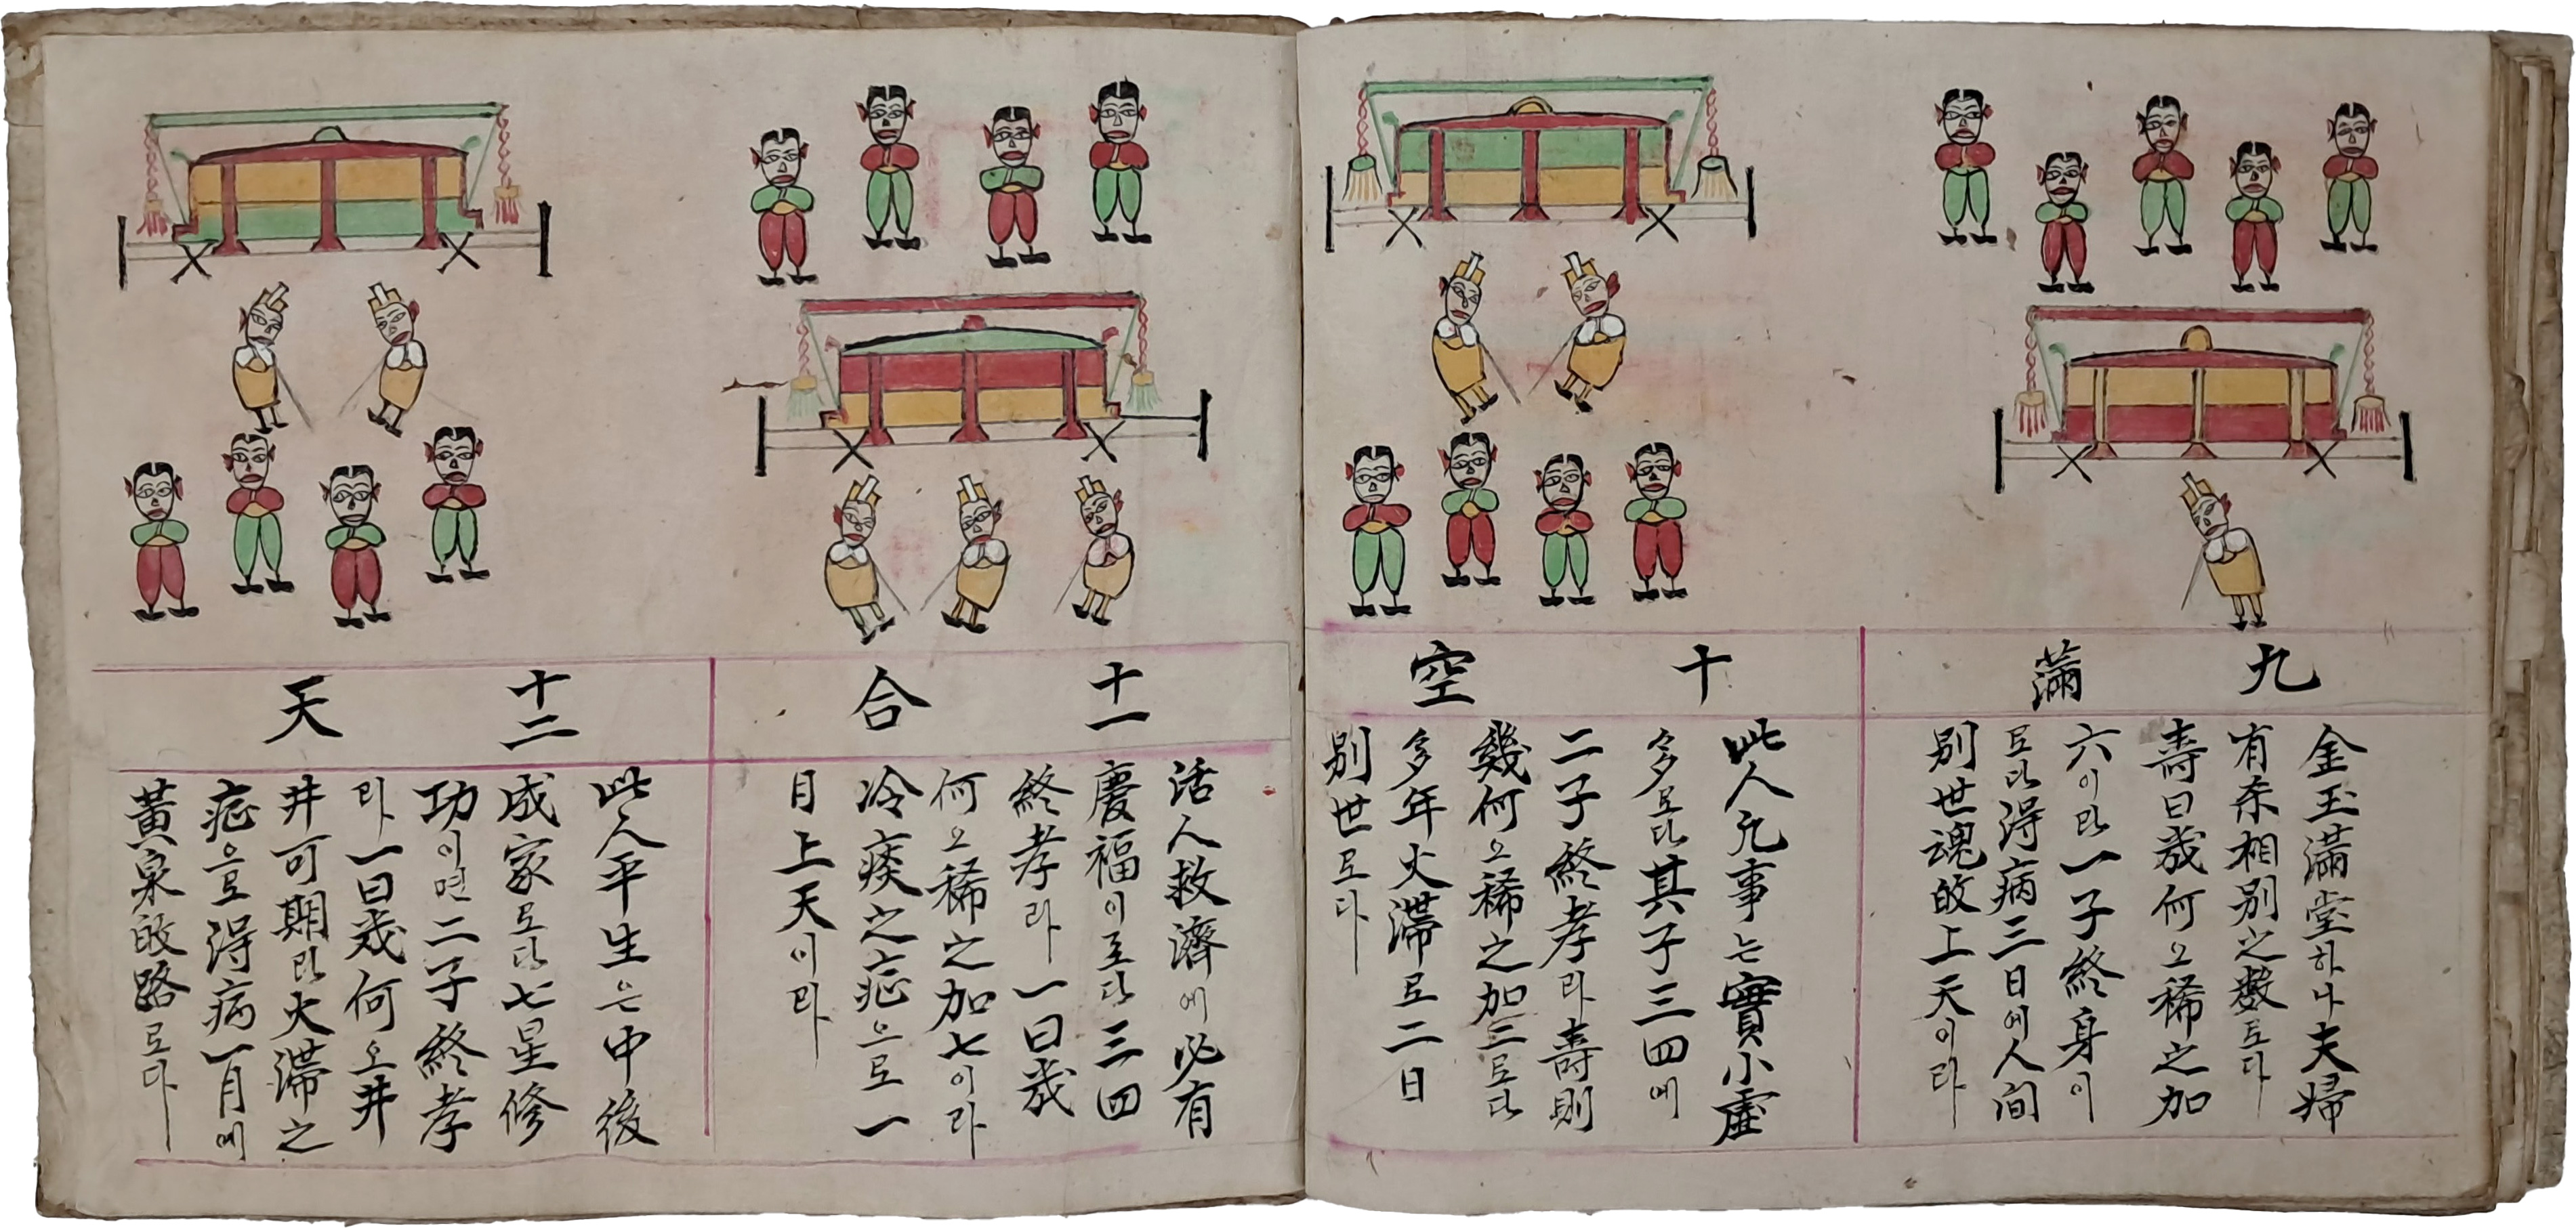 九 滿
金玉滿堂하나夫婦
有奈相別之數로다
壽曰歲何오稀之加
六이라一子終身이
로다得病三日에人间
別世魂皈上天이라
十 空
此人凡事는實小虛
多로다其子三四에
二子終孝라壽則
幾何오稀之加三로다
多年火滯로二日
別世로다
十一 合
活人救濟에必有
慶福이로다三四
終孝라一曰歲
何오稀之加七이라
冷痰之症으로一
日上天이라
十二 天
此人平生은中後
成家로다七星修
功이면二子終孝
라一曰歲何오井
井可期라火滯之
症으로得病一月에
黃泉皈路로다